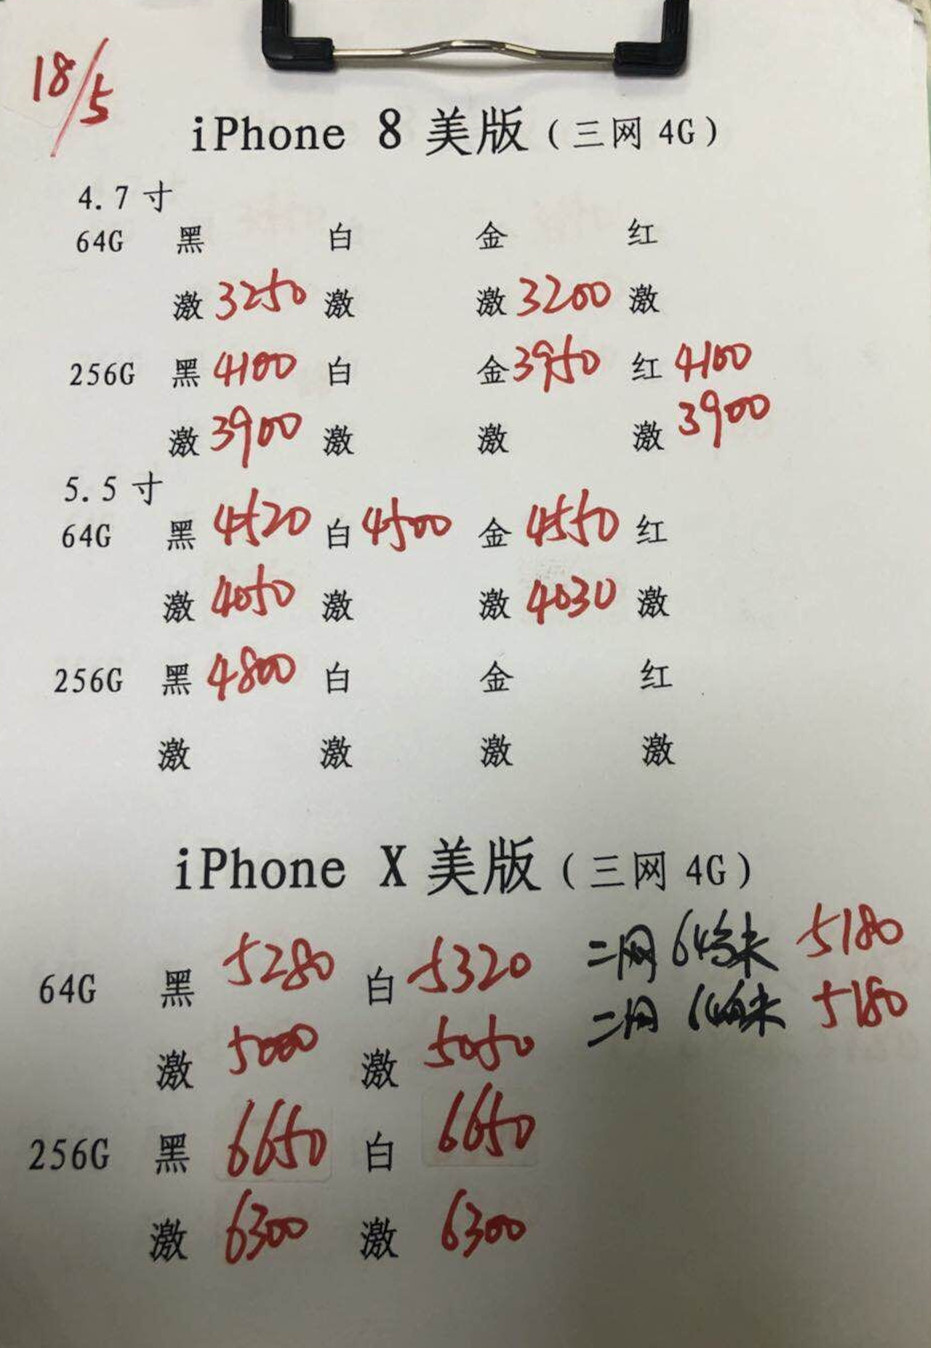 18/5
iPhone 8 美版（三网 4G）
4.7 寸
64G 黑 白 金 红
激 3250 激 激 3200 激
256G 黑 4100 白 金 3950 红 4100
激 3900 激 激 激 3900
5.5 寸
64G 黑 4520 白 4500 金 4550 红
激 4050 激 激 4030 激
256G 黑 4800 白 金 红
激 激 激 激
iPhone X 美版（三网 4G）
二网 64 未 5180
64G 黑 5280 白 5320
二网 64 未 5180
激 5000 激 5050
256G 黑 6650 白 6650
激 6300 激 6300